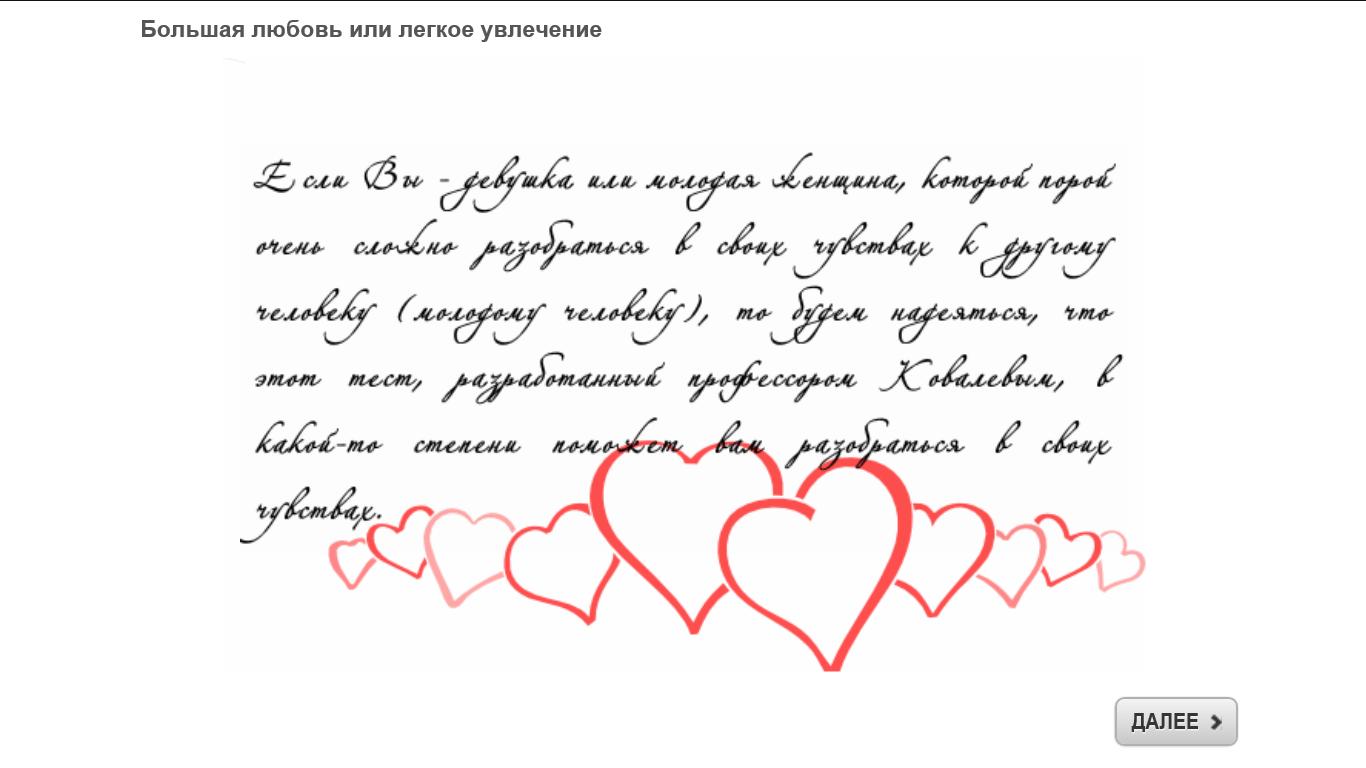 Большая любовь или легкое увлечение
Если Вы - девушка или молодая женщина, которой порой
очень сложно разобраться в своих чувствах к другому
человеку (молодому человеку), то будем надеяться, что
этот тест, разработанный профессором Ковалевым, в
какой-то степени поможет вам разобраться в своих
чувствах.
ДАЛЕЕ